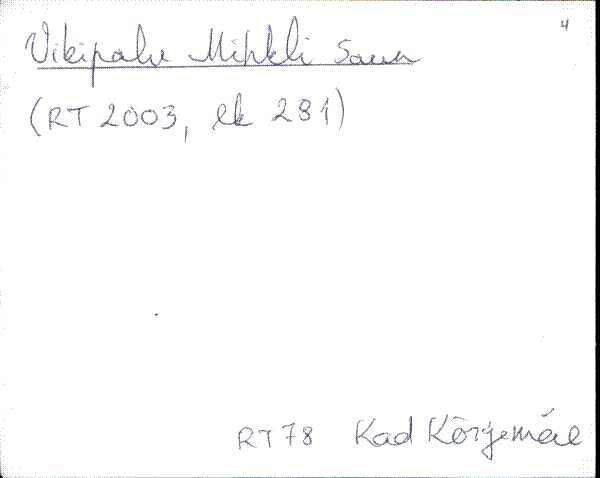 4
Vikipalu Mihkli Saun
(RT 2003, lk 281)
RT 78 Kad Kõrgemäe